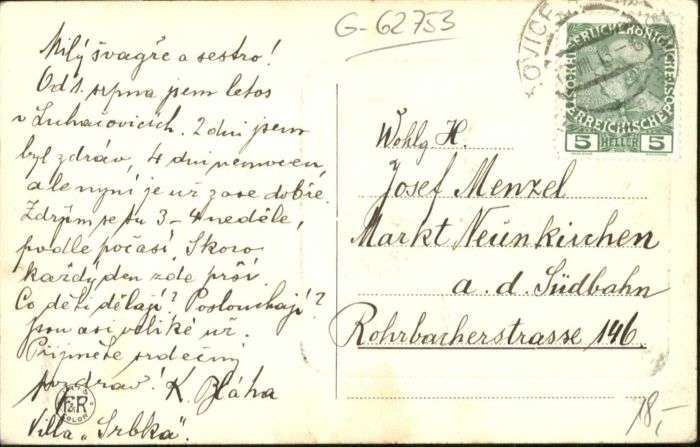 G-62753
Milý švagře a sestro!
Od 1. srpna jsem letos
v Luhačovicích. 2 dni jsem
byl zdráv, 4 dni nemocen,
ale nyní je už zase dobře.
Zdržím se tu 3-4 neděle,
podle počasí. Skoro
každý den zde prší.
Co děti dělají? Poslouchají?
Jsou asi veliké už.
Přijměte srdečný
pozdrav! K. Bláha
Villa "Srbka".
Wohlg. H.
Josef Menzel
Markt Neunkirchen
a. d. Südbahn
Rohrbacherstrasse 146
5 HELLER 5
18,-